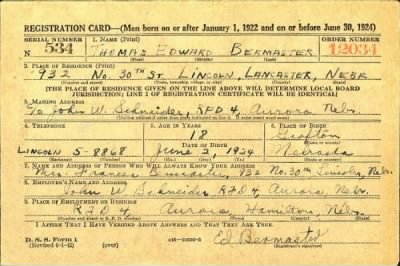 REGISTRATION CARD—(Men born on or after January 1, 1922 and on or before June 30, 1924)
SERIAL NUMBER 1. NAME (Print) ORDER NUMBER
N 534 THOMAS EDWARD BERMASTER 12034
(First) (Middle) (Last)
2. PLACE OF RESIDENCE (Print)
932 No. 30TH ST. LINCOLN, LANCASTER, NEBR
(Number and street) (Town, township, village, or city) (County) (State)
[THE PLACE OF RESIDENCE GIVEN ON THE LINE ABOVE WILL DETERMINE LOCAL BOARD
JURISDICTION; LINE 2 OF REGISTRATION CERTIFICATE WILL BE IDENTICAL]
3. MAILING ADDRESS
c/o John W. Schneider, RFD 4, Aurora Nebr.
4. TELEPHONE 5. AGE IN YEARS 6. PLACE OF BIRTH
18 Grafton
DATE OF BIRTH
LINCOLN 5-8868 June 2, 1924 Nebraska
7. NAME AND ADDRESS OF PERSON WHO WILL ALWAYS KNOW YOUR ADDRESS
Mrs. Frances Bermaster, 932 No. 30th Lincoln, Nebr.
8. EMPLOYER'S NAME AND ADDRESS
John W. Schneider RFD 4 Aurora, Nebr.
9. PLACE OF EMPLOYMENT OR BUSINESS
RFD 4 Aurora, Hamilton, Nebr.
I AFFIRM THAT I HAVE VERIFIED ABOVE ANSWERS AND THAT THEY ARE TRUE.
D. S. S. Form 1
(Revised 6-1-42) (over) Ed Bermaster